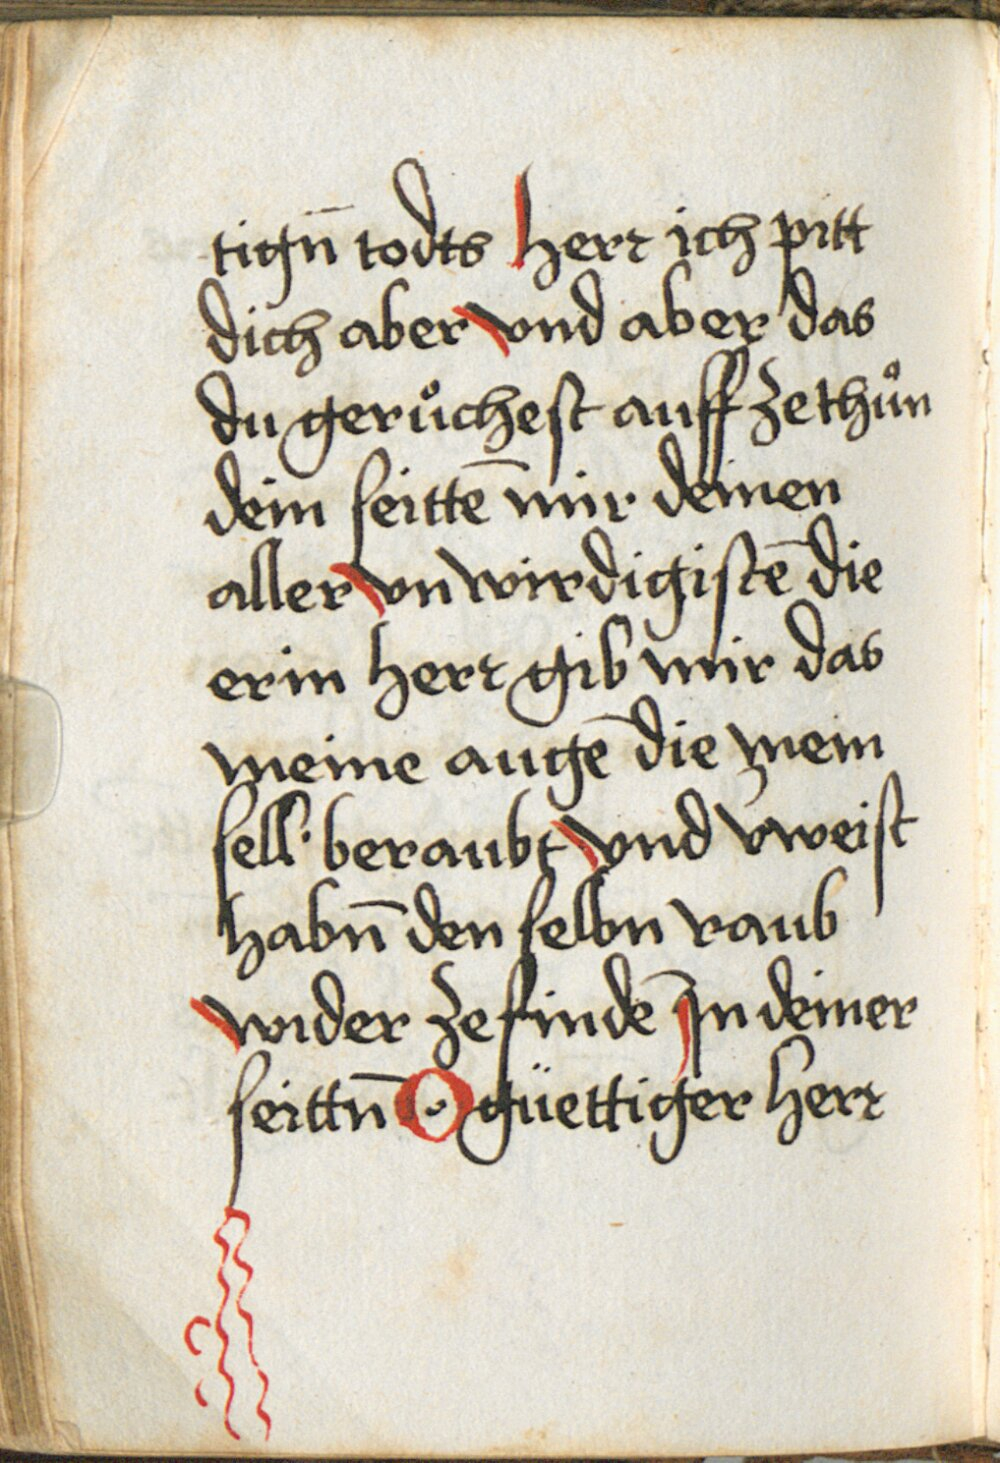 tign̄ todts herr ich pitt
dich aber vnd aber das
du gerůchest auff zethůn
dein seittē mir deinen
aller vnwirdigistē die
erin herr gib mir das
meine augē die mein
sell · beraubt vnd vweist
habn̄ den selbn raub
wider zefindē Jn deiner
seittn̄ O güettiger herr